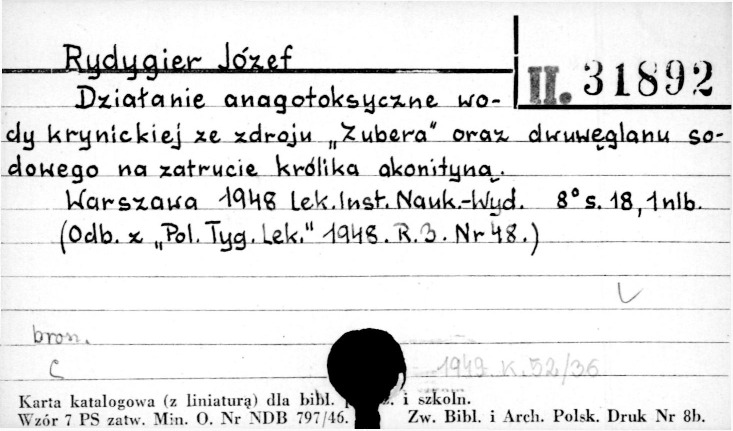 Rydygier Józef
II. 31892
Działanie anagotoksyczne wo-
dy krynickiej ze zdroju „Zubera" oraz dwuwęglanu so-
dowego na zatrucie królika akonityną.
Warszawa 1948 Lek. Inst. Nauk.-Wyd. 8° s. 18, 1 nlb.
(Odb. z „Pol. Tyg. Lek." 1948. R. 3. Nr 48.)
bron.
C
1949. K. 52/36
Karta katalogowa (z liniaturą) dla bibl. i szkoln.
Wzór 7 PS zatw. Min. O. Nr NDB 797/46. Zw. Bibl. i Arch. Polsk. Druk Nr 8b.